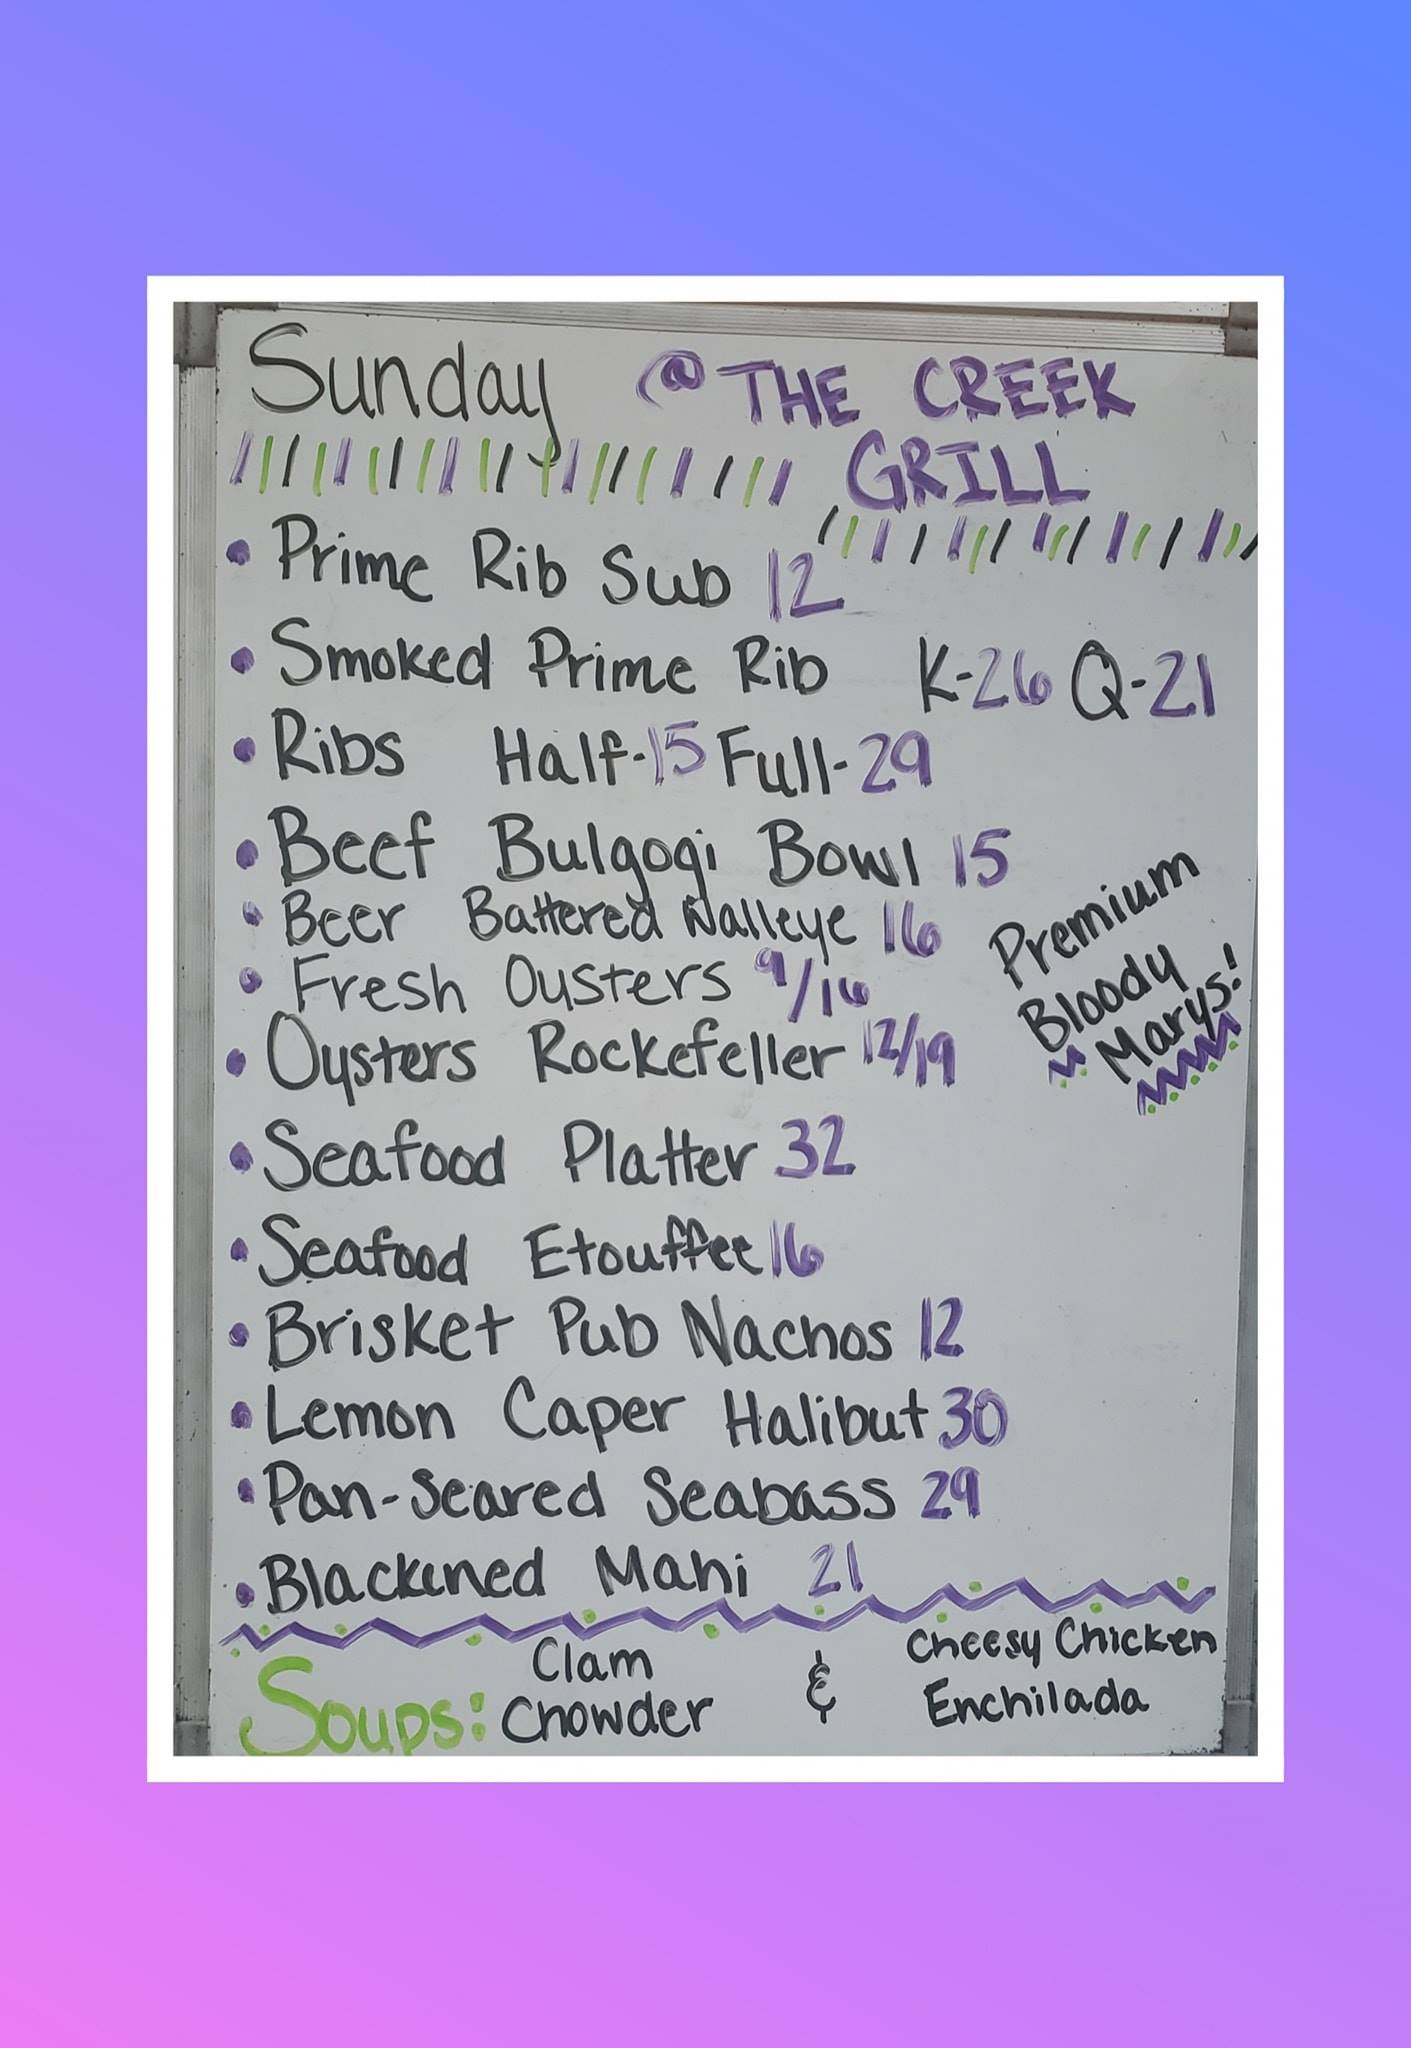 Sunday @ THE CREEK
GRILL
• Prime Rib Sub 12
• Smoked Prime Rib K-26 Q-21
• Ribs Half-15 Full-29
• Beef Bulgogi Bowl 15
• Beer Battered Walleye 16
• Fresh Oysters 9/16
• Oysters Rockefeller 12/19
Premium
Bloody
Marys!
• Seafood Platter 32
• Seafood Etouffee 16
• Brisket Pub Nachos 12
• Lemon Caper Halibut 30
• Pan-Seared Seabass 29
• Blackened Mahi 21
Soups: Clam
Chowder
&
Cheesy Chicken
Enchilada